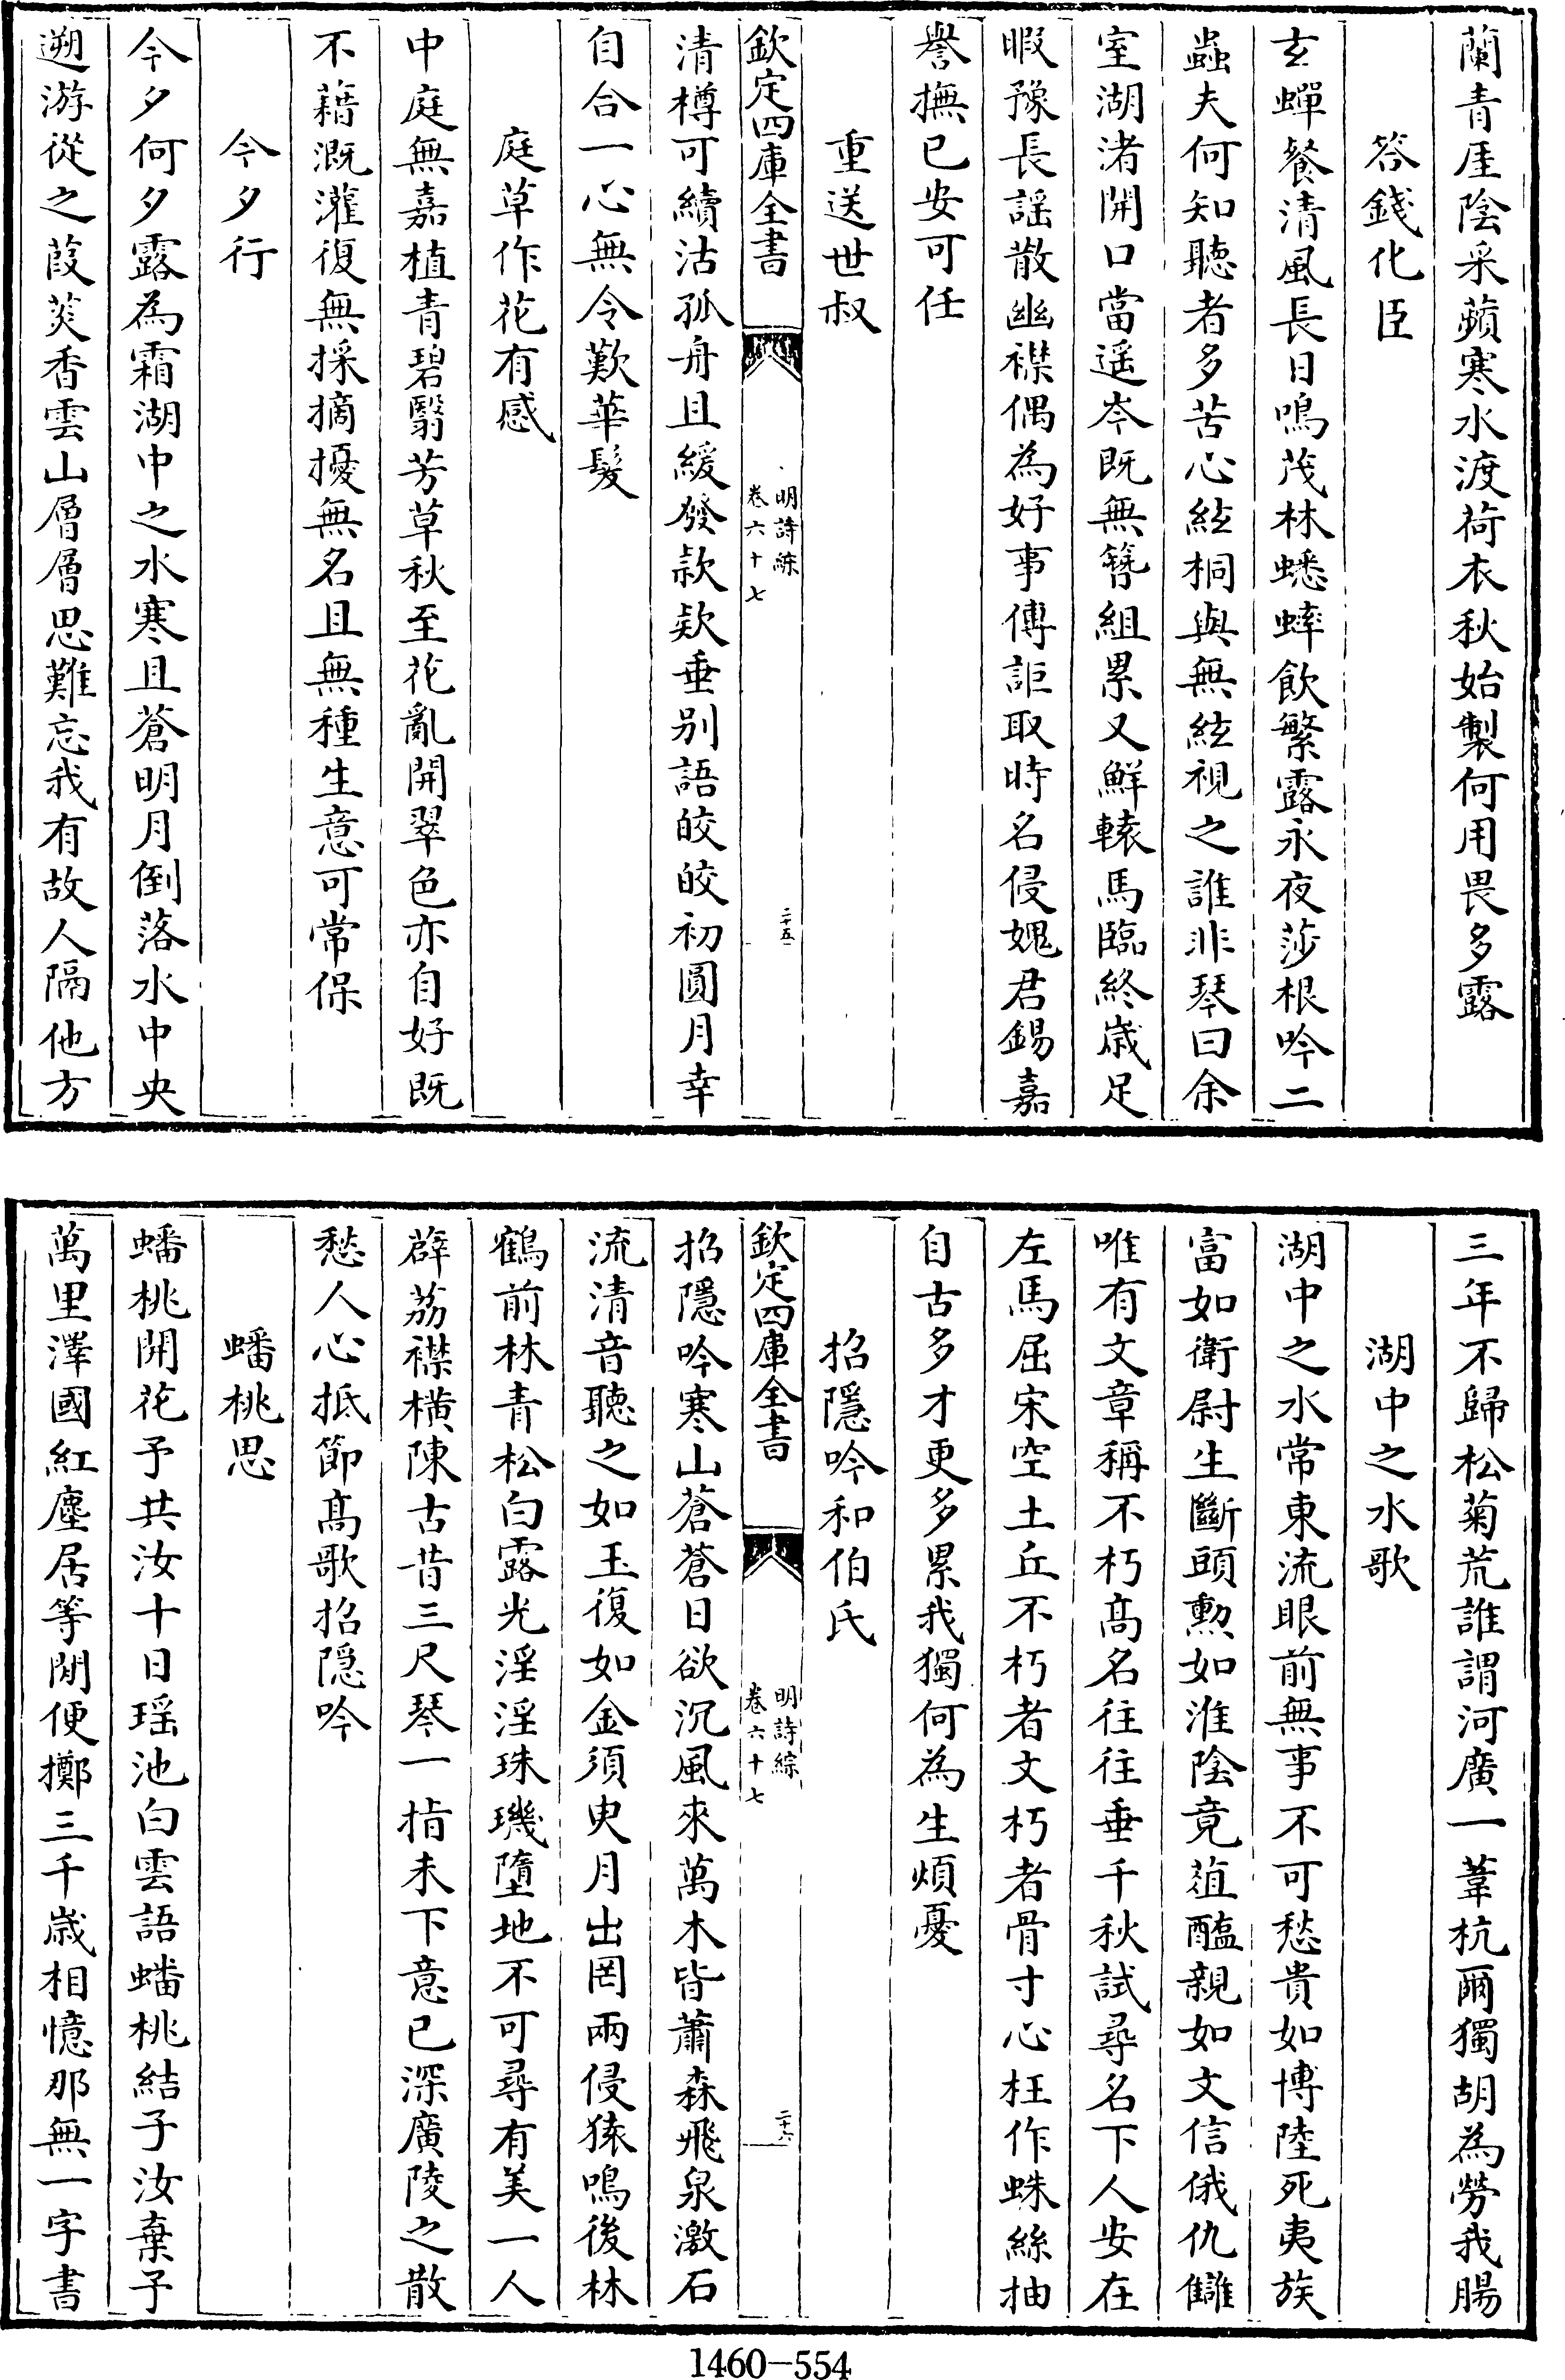 蘭青厓陰采蘋寒水渡荷衣秋始製何用畏多露
答錢化臣
玄蟬餐清風長日鳴茂林蟋蟀飲繁露永夜莎根吟二
蟲夫何知聽者多苦心絃桐與無絃視之誰非琴曰余
室湖渚開口當遥岑既無簪組累又鮮轅馬臨終歲足
暇豫長謡散幽襟偶為好事傳詎取時名侵媿君錫嘉
譽撫已安可任
重送世叔
欽定四庫全書
明詩綜
卷六十七
二十五
清樽可續沽孤舟且緩發款欵垂别語皎皎初圓月幸
自合一心無令歎華髮
庭草作花有感
中庭無嘉植青碧翳芳草秋至花亂開翠色亦自好既
不藉溉灌復無採摘擾無名且無種生意可常保
今夕行
今夕何夕露為霜湖中之水寒且蒼明月倒落水中央
遡游從之葭菼香雲山層層思難忘我有故人隔他方
三年不歸松菊荒誰謂河廣一葦杭爾獨胡為勞我腸
湖中之水歌
湖中之水常東流眼前無事不可愁貴如博陸死夷族
富如衛尉生斷頭勲如淮陰竟葅醢親如文信俄仇讎
唯有文章稱不朽髙名往往垂千秋試尋名下人安在
左馬屈宋空土丘不朽者文朽者骨寸心枉作蛛絲抽
自古多才更多累我獨何為生煩憂
招隱吟和伯氏
欽定四庫全書
明詩綜
卷六十七
二十六
招隱吟寒山蒼蒼日欲沉風來萬木皆蕭森飛泉激石
流清音聽之如玉復如金須臾月出罔兩侵猿鳴後林
鶴前林青松白露光淫淫珠璣墮地不可尋有美一人
薜荔襟横陳古昔三尺琴一指未下意已深廣陵之散
愁人心抵節髙歌招隱吟
蟠桃思
蟠桃開花予共汝十日瑶池白雲語蟠桃結子汝棄子
萬里澤國紅塵居等閒便擲三千歲相憶那無一字書
1460—554